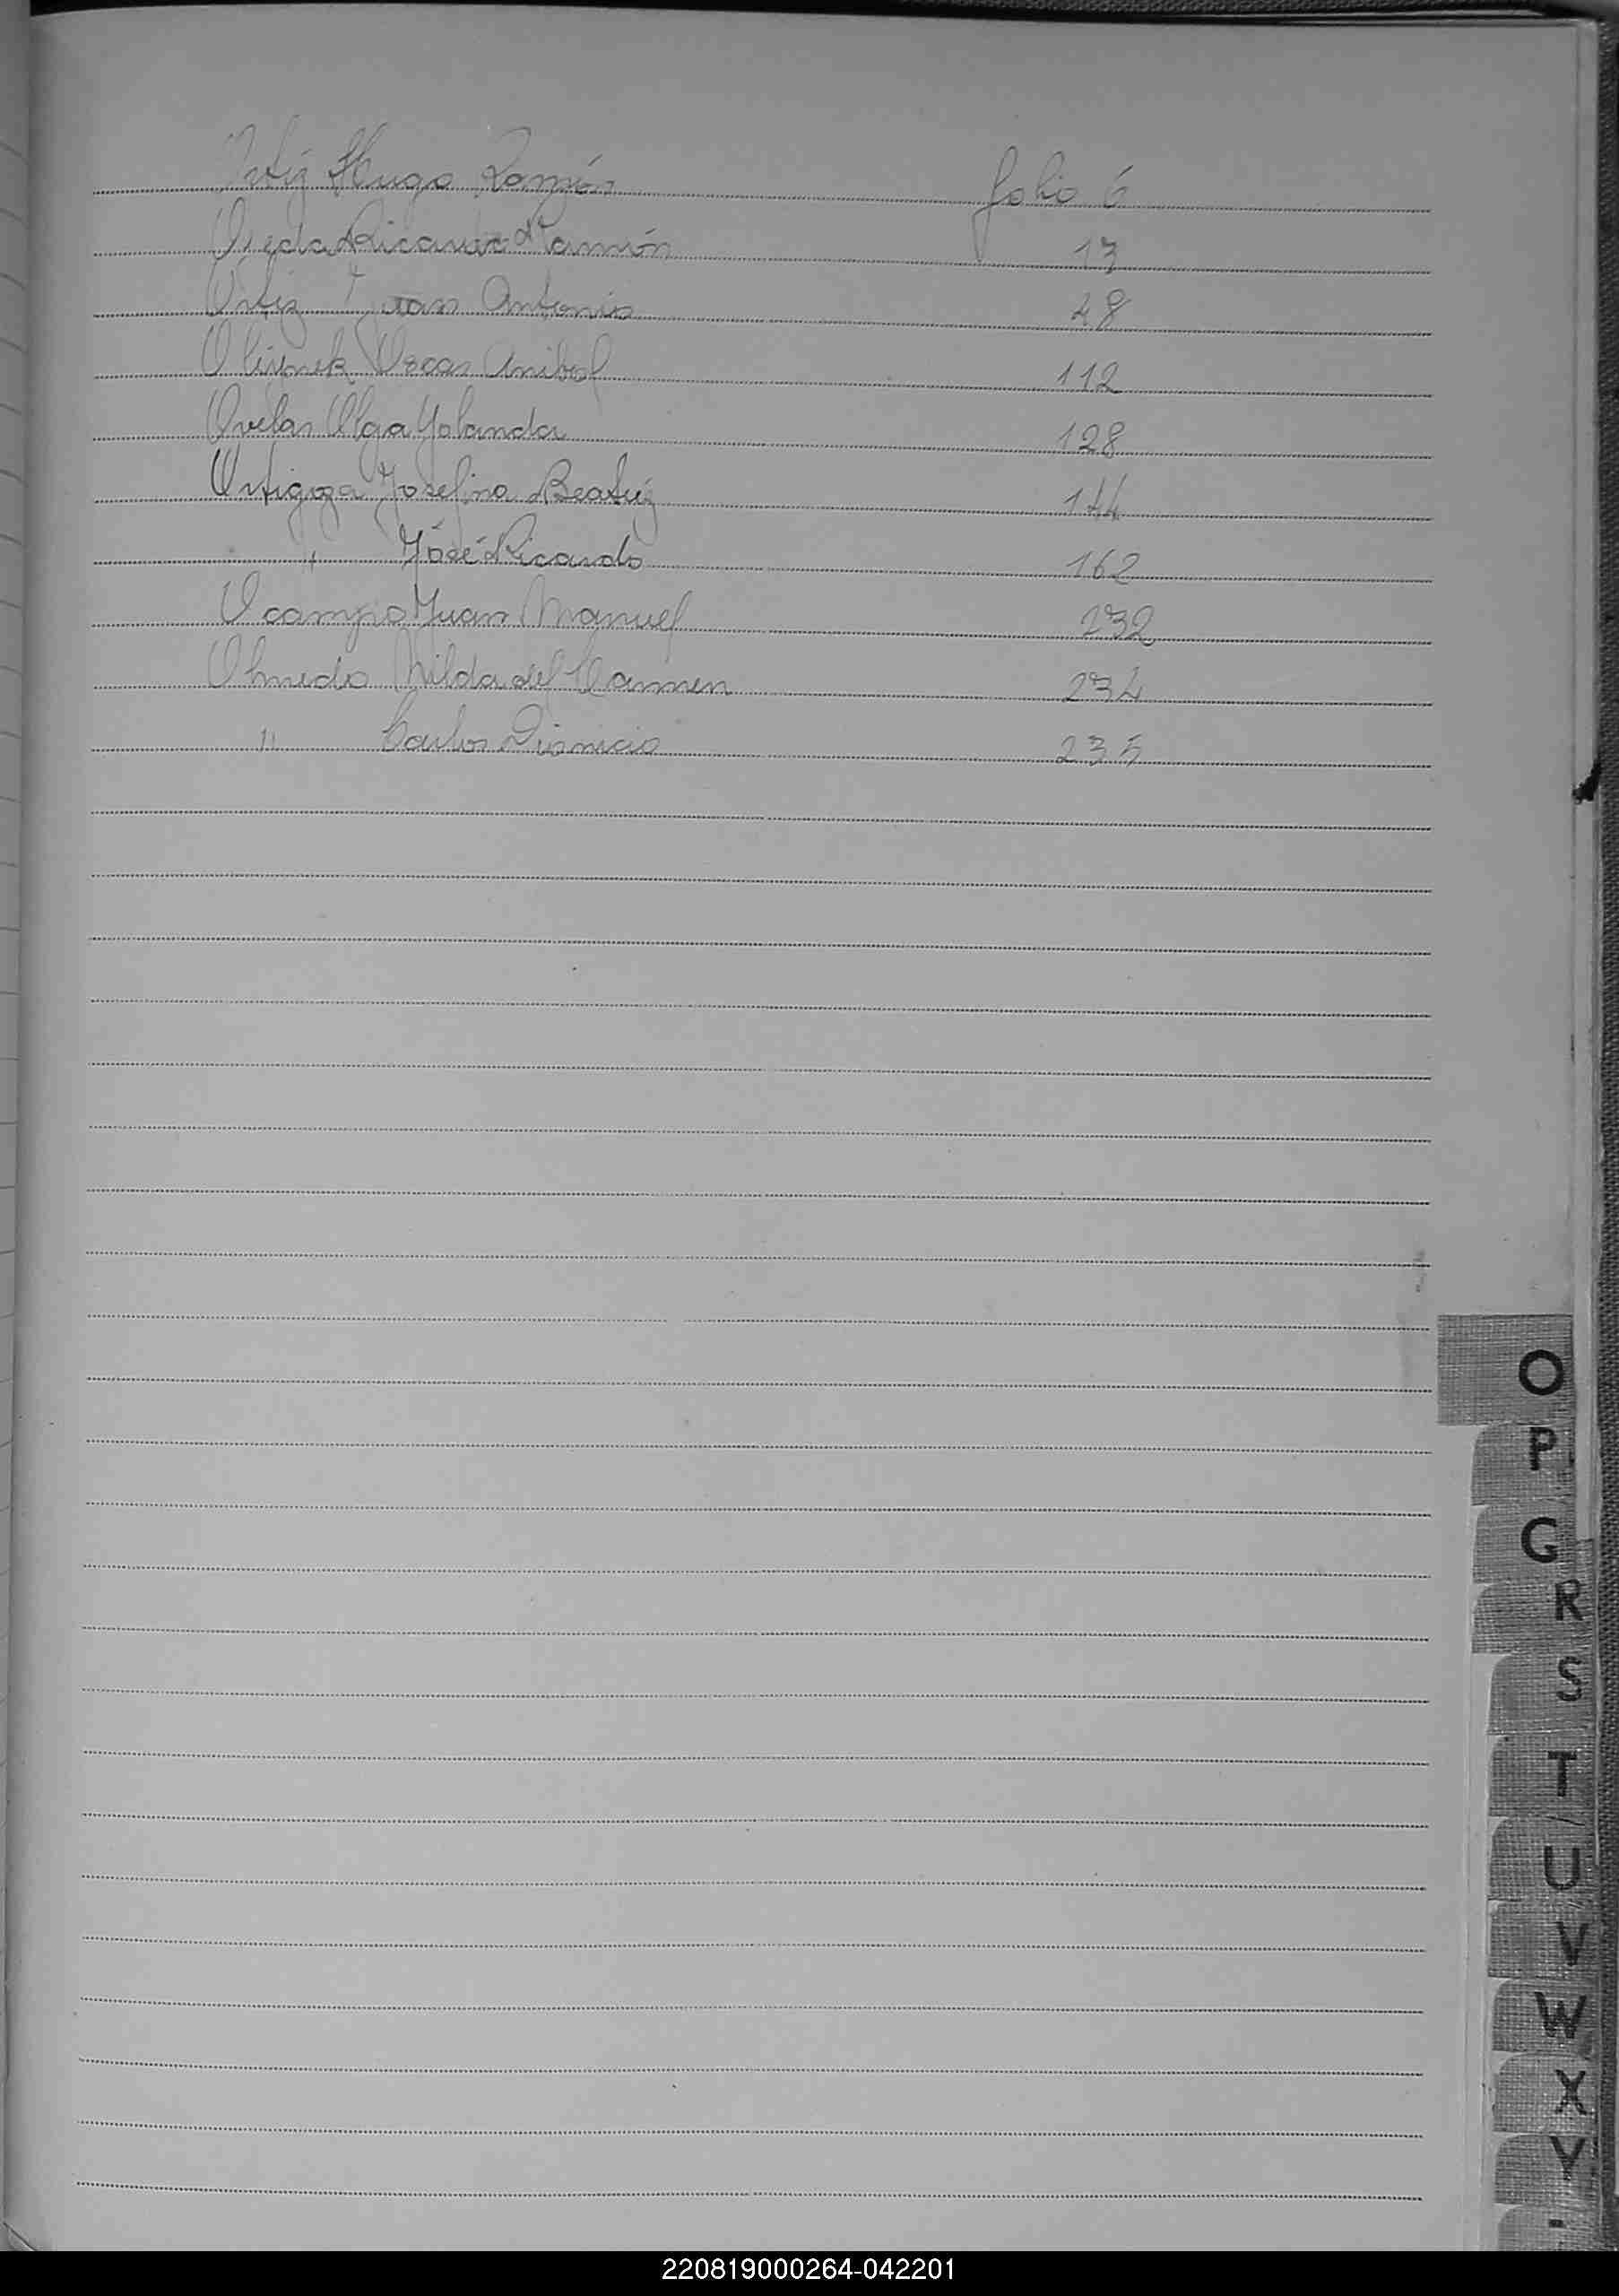 Ortiz Hugo Ramón folio 6
Ojeda Ricardo Ramón 13
Ortiz Juan Antonio 48
Olivnek Oscar Anibal 112
Ovelar Olga Yolanda 128
Ortigoza Josefina Beatriz 144
" José Ricardo 162
Ocampo Juan Manuel 232
Olmedo Nilda del Carmen 234
" Carlos Dionicio 235
O
P
G
R
S
T
U
V
W
X
Y
220819000264-042201